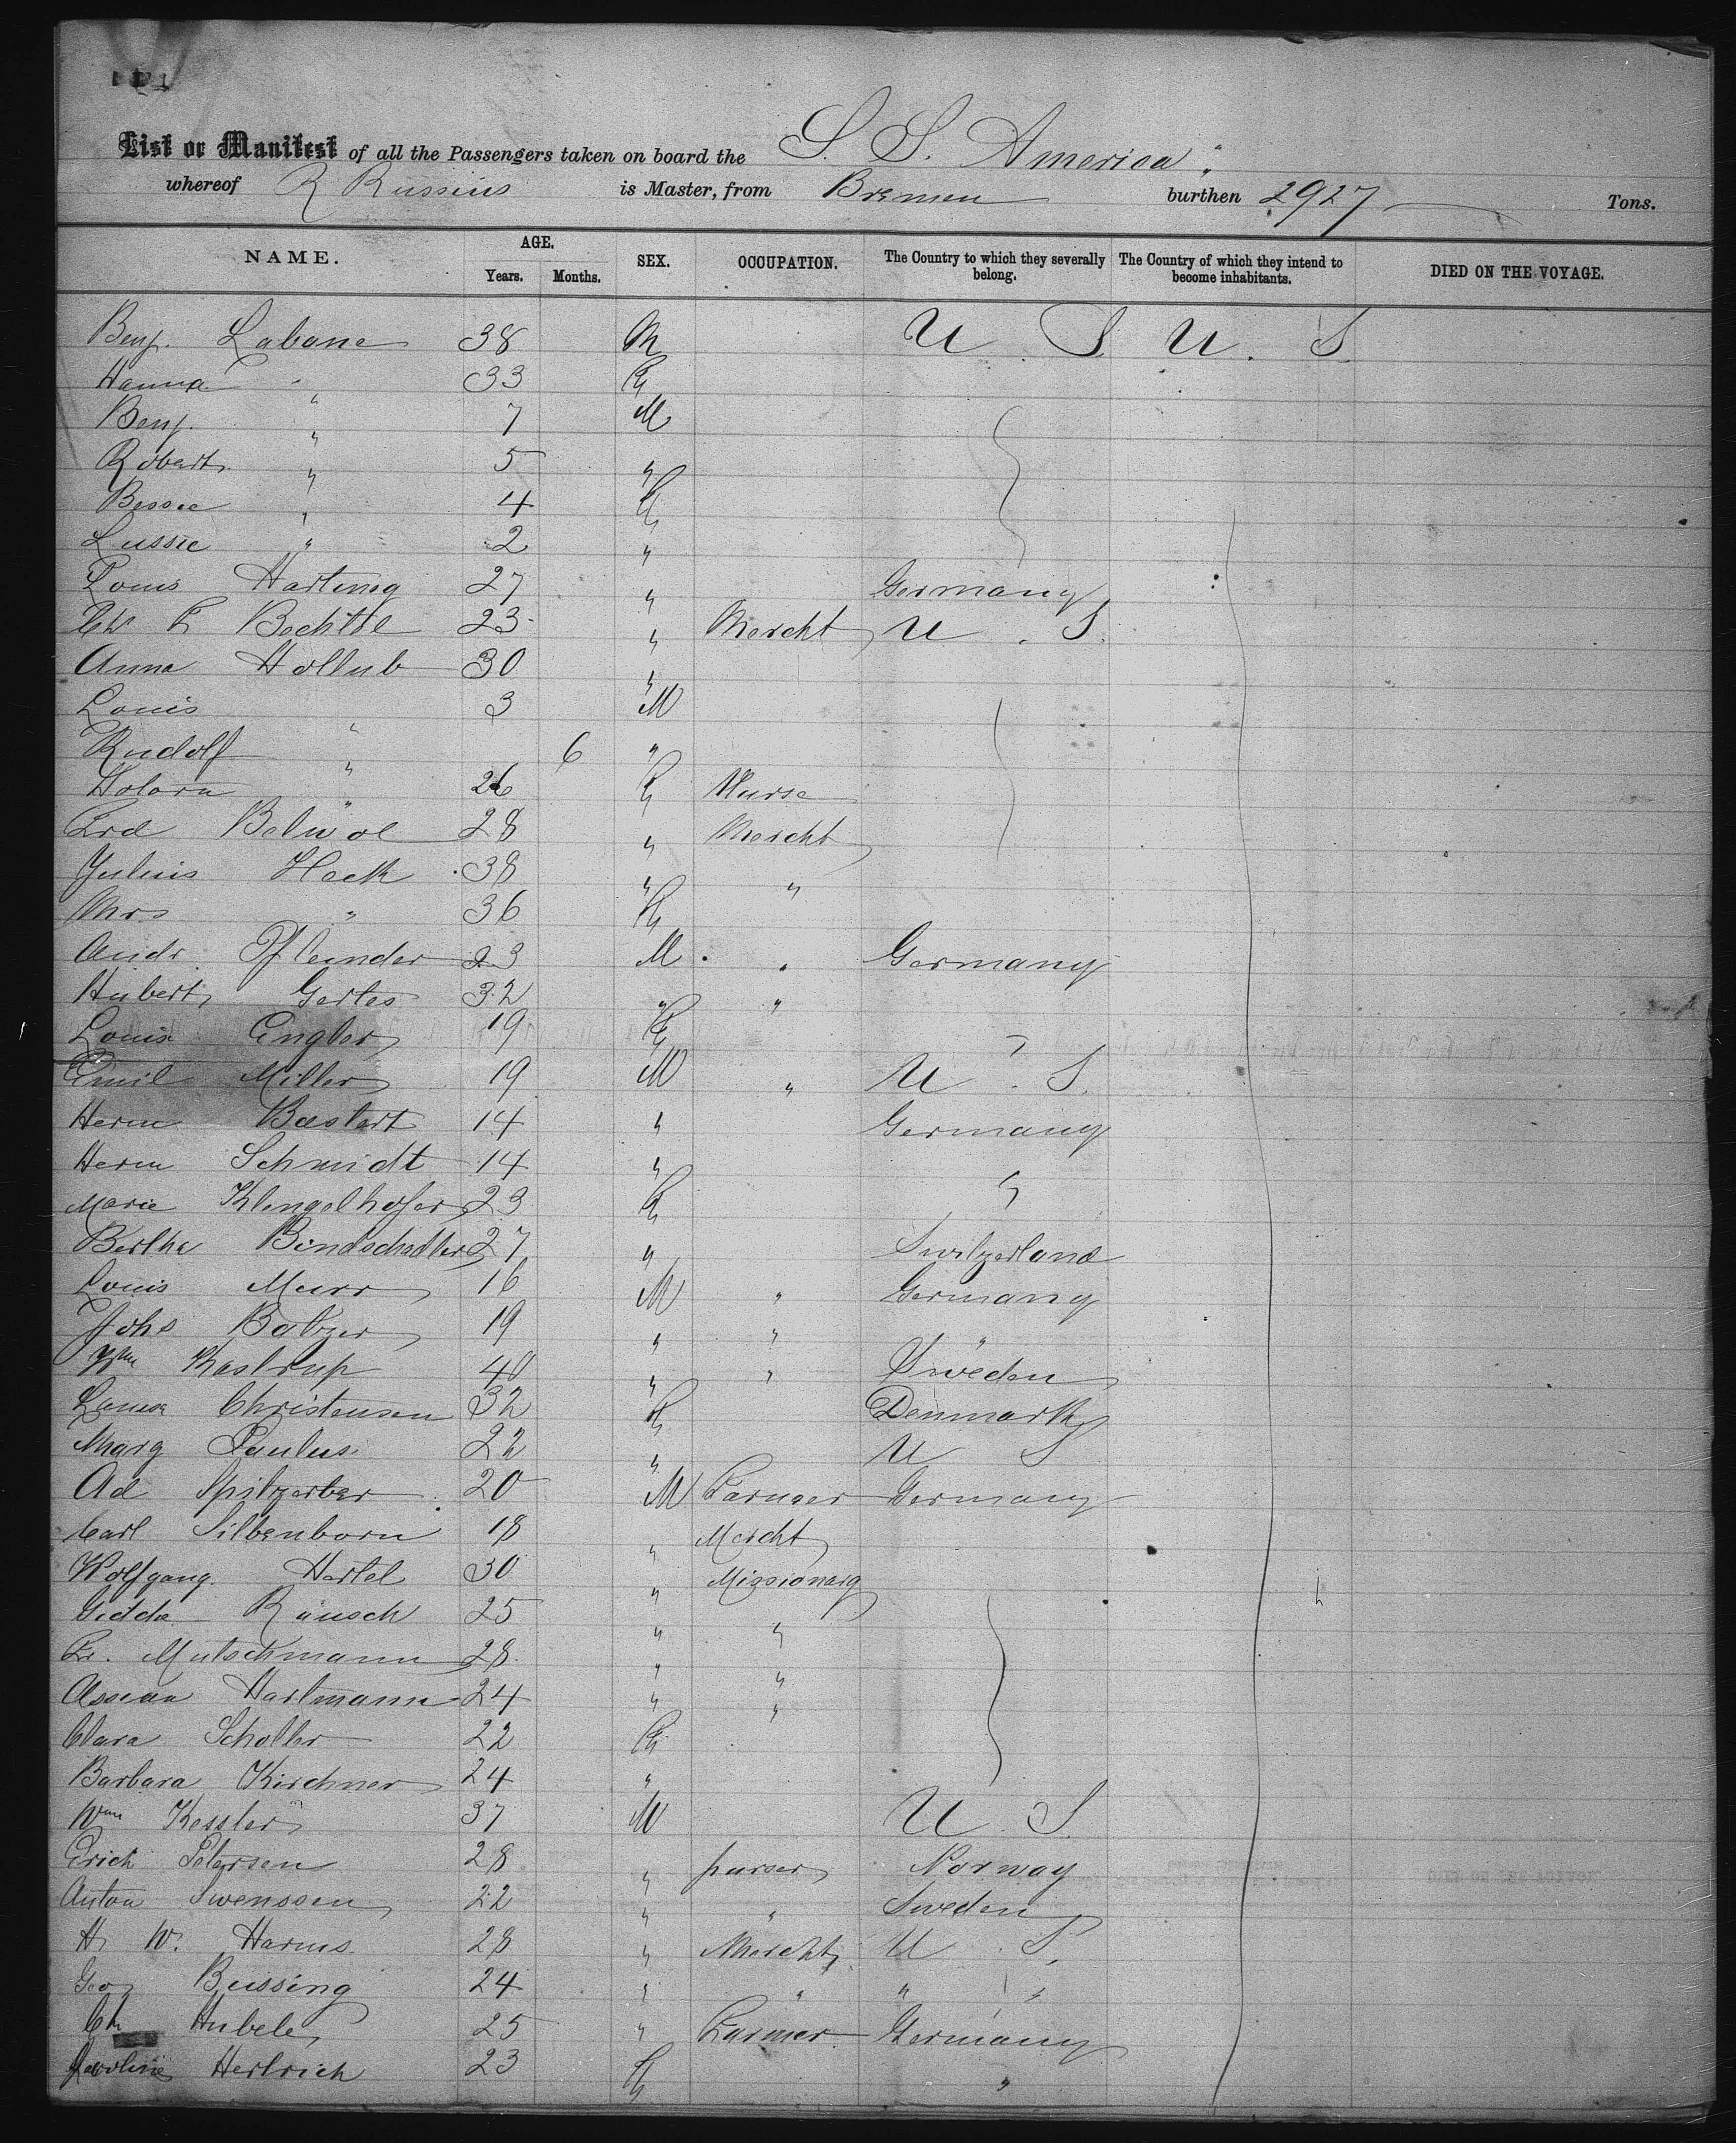 List or Manifest of all the Passengers taken on board the S. S. America
whereof R Russius is Master, from Bremen burthen 2927 Tons.
NAME. AGE. Years. Months. SEX. OCCUPATION. The Country to which they severally belong. The Country of which they intend to become inhabitants. DIED ON THE VOYAGE.
Benj. Labone 38 M U. S U. S
Hanna " 33 F
Benj. " 7 M
Robert " 5 "
Bessie " 4 F
Lussie " 2 "
Louis Hartung 27 " Germany
Chr F Bechtel 23 " Mercht U. S.
Anna Hollub 30 "
Louis " 3 M
Rudolf " 6 "
" 26 F Nurse
28 " Mercht
Julius Heck 38 " "
Mrs " 36 F
Andr. Pfleinder 23 M " Germany
Hubert Gertes 32 " "
Louis Engler 19 F "
Emil Miller 19 M " U. S.
Herm Bastert 14 " Germany
Herm Schmidt 14 "
Marie Klengelhofer 23 F "
Bertha Bindschedler 27 " Switzerland
Louis Murr 16 M " Germany
Johs Balzer 19 " " "
Wm Kastrup 40 " " Sweden
Louisa Christensen 32 F Denmark
Marg Paulus 22 " U S
Ad Spitzerber 20 M Farmer Germany
Carl Silbenborn 18 " Mercht
Wolfgang Hertel 30 " Missionary
Rausch 25 " "
Fr. Mutschmann 28 " "
Hartmann 24 " "
Clara Scholler 22 F
Barbara Kirchner 24 "
Wm Kessler 37 M U. S.
Erich Petersen 28 " purser Norway
Anton Swenssen 22 " " Sweden
H. W. Harms 28 " Mercht U. S.
Geo Beissing 24 " " " "
Ch Hubele 25 " Farmer Germany
Karoline Herlrich 23 F "